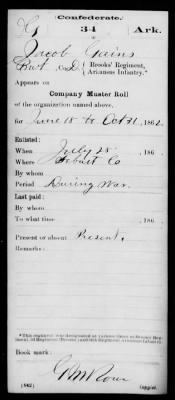 Confederate.
G 34 Ark.
Jacob Gains
Pvt, Co. D { Brooks' Regiment,
Arkansas Infantry.*
Appears on
Company Muster Roll
of the organization named above,
for June 18 to Oct 31, 1862.
Enlisted:
When July 28, 186
Where Co
By whom
Period During War.
Last paid:
By whom
To what time , 186 .
Present or absent Present.
*This regiment was designated at various times as Brooks' Regiment,
Book mark:
(642) Copyist.